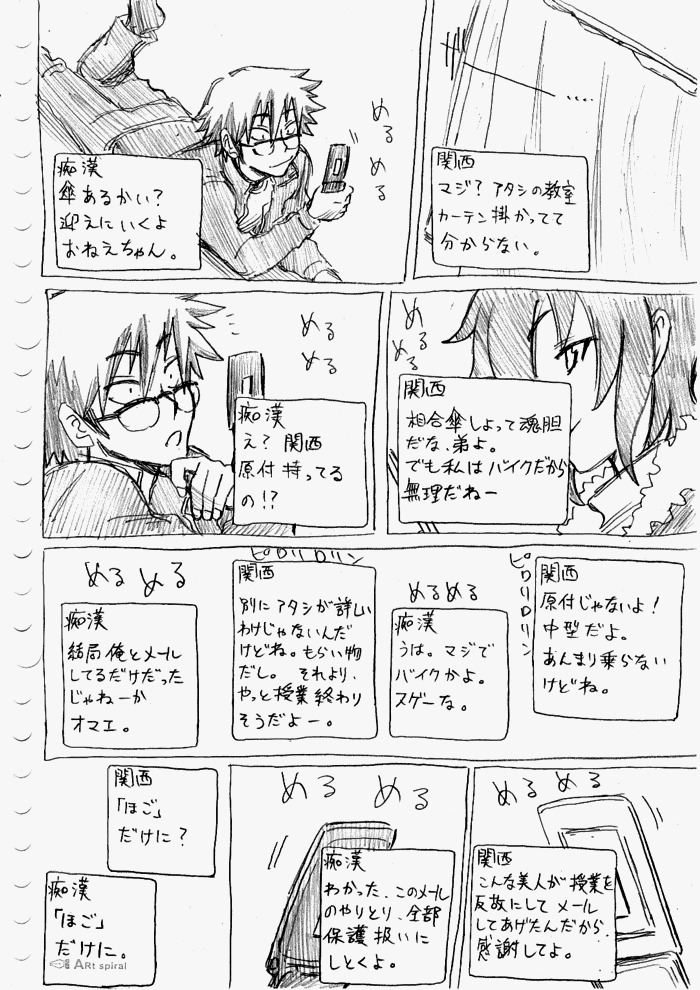 関西
マジ?アタシの教室
カーテン掛かってて
分からない。
....
めるめる
痴漢
傘あるかい?
迎えにいくよ
おねえちゃん。
める
める
関西
相合傘しよって魂胆
だな、弟よ。
でも私はバイクだから
無理だねー
める
める
痴漢
え?関西
原付持ってる
の!?
ピロリロリン
関西
原付じゃないよ!
中型だよ。
あんまり乗らない
けどね。
めるめる
痴漢
うは。マジで
バイクかよ。
スゲーな。
ピロリロリン
関西
別にアタシが詳しい
わけじゃないんだ
けどね。もらい物
だし。それより、
やっと授業終わり
そうだよー。
めるめる
痴漢
結局俺とメール
してるだけだった
じゃねーか
オマエ。
めるめる
関西
こんな美人が授業を
反故にしてメール
してあげたんだから、
感謝してよ。
める める
痴漢
わかった、このメール
のやりとり、全部
保護扱いに
しとくよ。
関西
「ほご」
だけに?
痴漢
「ほご」
だけに。
ARt spiral